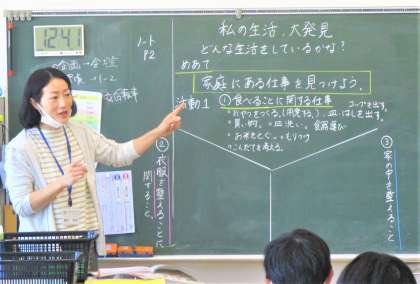 12:41
ノート
P2
私の生活、大発見
どんな生活をしているかな?
めあて
家庭にある仕事を見つけよう。
活動1
①食べることに関する仕事
・おやつをつくる、(用意する)、皿、はしを出す。
コップを出す。
・買い物。・皿洗い。食器運び
・お米をとぐ。・もりつけ
・こんだてを考える。
②衣服を整えることに
関すること。
③家の中を整えること